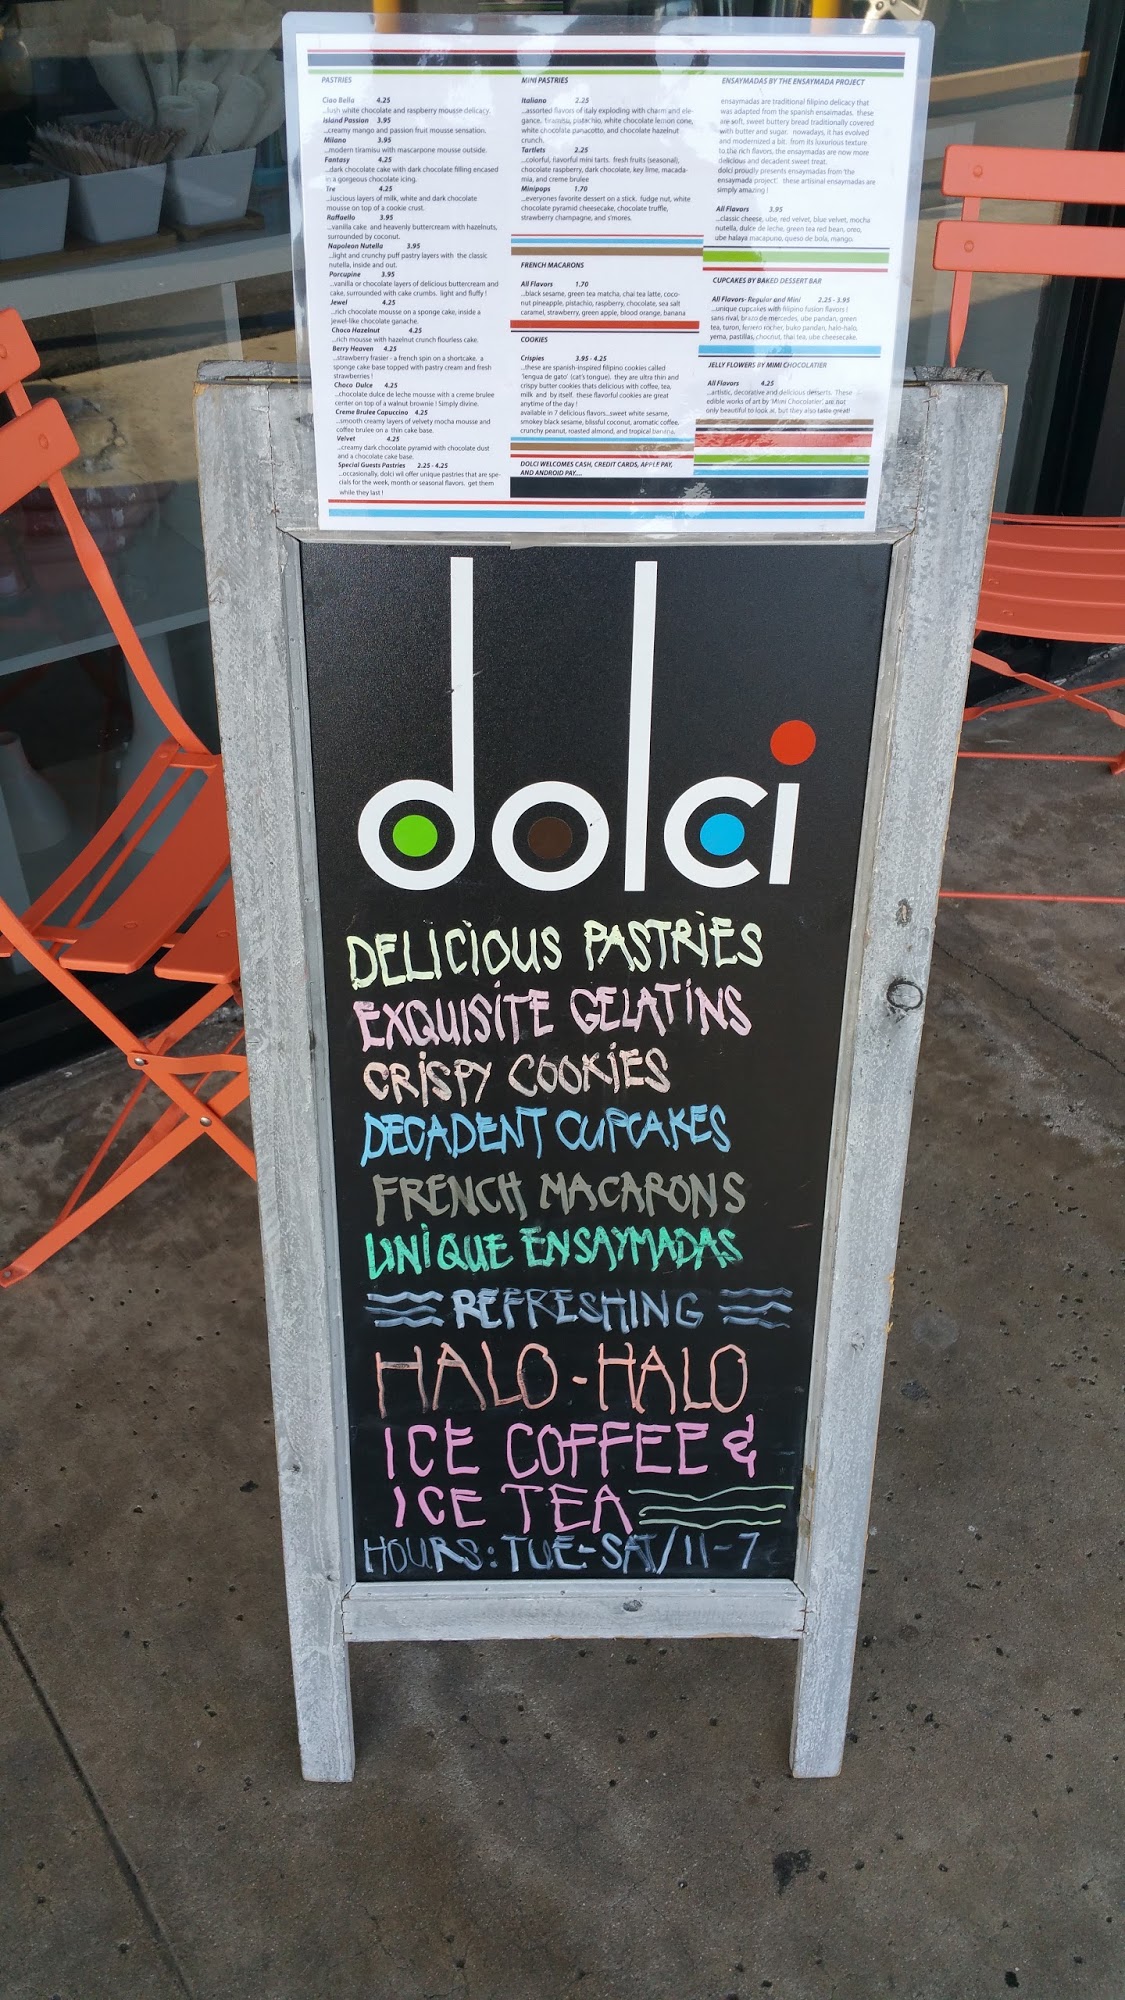 PASTRIES
Ciao Bella 4.25
...lush white chocolate and raspberry mousse delicacy.
Island Passion 3.95
...creamy mango and passion fruit mousse sensation.
Milano 3.95
...modern tiramisu with mascarpone mousse outside.
Fantasy 4.25
...dark chocolate cake with dark chocolate filling encased
in a gorgeous chocolate icing.
Tre 4.25
...luscious layers of milk, white and dark chocolate
mousse on top of a cookie crust.
Raffaello 3.95
...vanilla cake and heavenly buttercream with hazelnuts,
surrounded by coconut.
Napoleon Nutella 3.95
...light and crunchy puff pastry layers with the classic
nutella, inside and out.
Porcupine 3.95
...vanilla or chocolate layers of delicious buttercream and
cake, surrounded with cake crumbs. light and fluffy !
Jewel 4.25
...rich chocolate mousse on a sponge cake, inside a
jewel-like chocolate ganache.
Choco Hazelnut 4.25
...rich mousse with hazelnut crunch flourless cake.
Berry Heaven 4.25
...strawberry frasier - a french spin on a shortcake. a
sponge cake base topped with pastry cream and fresh
strawberries !
Choco Dulce 4.25
...chocolate dulce de leche mousse with a creme brulee
center on top of a walnut brownie ! Simply divine.
Creme Brulee Capuccino 4.25
...smooth creamy layers of velvety mocha mousse and
coffee brulee on a thin cake base.
Velvet 4.25
...creamy dark chocolate pyramid with chocolate dust
and a chocolate cake base.
Special Guests Pastries 2.25 - 4.25
...occasionally, dolci wil offer unique pastries that are spe-
cials for the week, month or seasonal flavors. get them
while they last !
MINI PASTRIES
Italiano 2.25
...assorted flavors of italy exploding with charm and ele-
gance. tiramisu, pistachio, white chocolate lemon cone,
white chocolate panacotto, and chocolate hazelnut
crunch.
Tartlets 2.25
...colorful, flavorful mini tarts. fresh fruits (seasonal),
chocolate raspberry, dark chocolate, key lime, macada-
mia, and creme brulee
Minipops 1.70
...everyones favorite dessert on a stick. fudge nut, white
chocolate pyramid cheesecake, chocolate truffle,
strawberry champagne, and s'mores.
FRENCH MACARONS
All Flavors 1.70
...black sesame, green tea matcha, chai tea latte, coco-
nut pineapple, pistachio, raspberry, chocolate, sea salt
caramel, strawberry, green apple, blood orange, banana
COOKIES
Crispies 3.95 - 4.25
...these are spanish-inspired filipino cookies called
'lengua de gato' (cat's tongue). they are ultra thin and
crispy butter cookies thats delicious with coffee, tea,
milk and by itself. these flavorful cookies are great
anytime of the day !
available in 7 delicious flavors...sweet white sesame,
smokey black sesame, blissful coconut, aromatic coffee,
crunchy peanut, roasted almond, and tropical banana.
DOLCI WELCOMES CASH, CREDIT CARDS, APPLE PAY,
AND ANDROID PAY....
ENSAYMADAS BY THE ENSAYMADA PROJECT
ensaymadas are traditional filipino delicacy that
was adapted from the spanish ensaimadas. these
are soft, sweet buttery bread traditionally covered
with butter and sugar. nowadays, it has evolved
and modernized a bit. from its luxurious texture
to the rich flavors, the ensaymadas are now more
delicious and decadent sweet treat.
dolci proudly presents ensaymadas from 'the
ensaymada project'. these artisinal ensaymadas are
simply amazing !
All Flavors 3.95
...classic cheese, ube, red velvet, blue velvet, mocha
nutella, dulce de leche, green tea red bean, oreo,
ube halaya macapuno, queso de bola, mango.
CUPCAKES BY BAKED DESSERT BAR
All Flavors- Regular and Mini 2.25 - 3.95
...unique cupcakes with filipino fusion flavors !
sans rival, brazo de mercedes, ube pandan, green
tea, turon, ferrero rocher, buko pandan, halo-halo,
yema, pastillas, chocnut, thai tea, ube cheesecake.
JELLY FLOWERS BY MIMI CHOCOLATIER
All Flavors 4.25
...artistic, decorative and delicious desserts. These
edible works of art by 'Mimi Chocolatier', are not
only beautiful to look at, but they also taste great!
dolci
DELICIOUS PASTRIES
EXQUISITE GELATINS
CRISPY COOKIES
DECADENT CUPCAKES
FRENCH MACARONS
UNIQUE ENSAYMADAS
REFRESHING
HALO-HALO
ICE COFFEE &
ICE TEA
HOURS: TUE-SAT/11-7